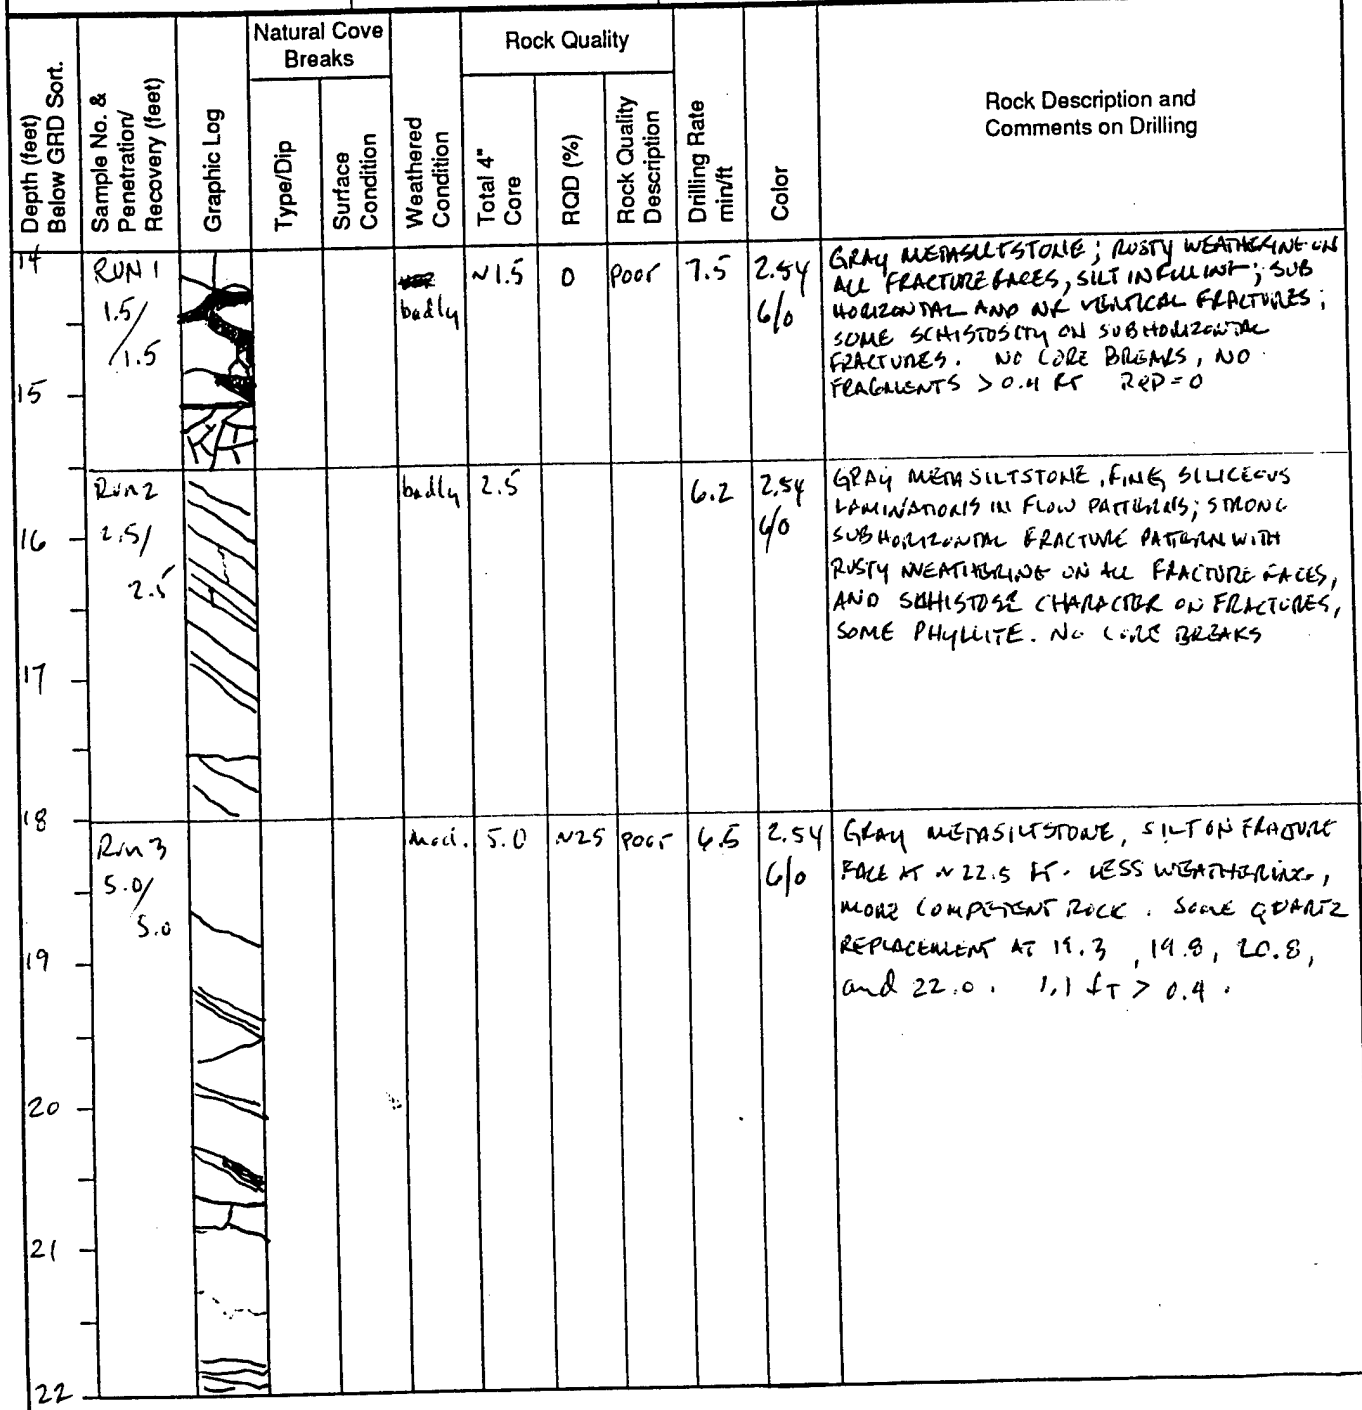 Natural Cove
Breaks
Rock Quality
Depth (feet)
Below GRD Sort.
Sample No. &
Penetration/
Recovery (feet)
Graphic Log
Type/Dip
Surface
Condition
Weathered
Condition
Total 4"
Core
RQD (%)
Rock Quality
Description
Drilling Rate
min/ft
Color
Rock Description and
Comments on Drilling
14
RUN 1
1.5/
1.5
badly
~1.5
0
Poor
7.5
2.5Y
6/0
GRAY METASILTSTONE; RUSTY WEATHERING ON
ALL FRACTURE FACES, SILT INFILLING; SUB
HORIZONTAL AND NR VERTICAL FRACTURES;
SOME SCHISTOSITY ON SUBHORIZONTAL
FRACTURES. NO CORE BREAKS, NO
FRAGMENTS > 0.4 FT RQD=0
15
Run 2
2.5/
2.5
badly
2.5
6.2
2.5Y
6/0
GRAY METASILTSTONE, FINE, SILICEOUS
LAMINATIONS IN FLOW PATTERNS; STRONG
SUBHORIZONTAL FRACTURE PATTERN WITH
RUSTY WEATHERING ON ALL FRACTURE FACES,
AND SCHISTOSE CHARACTER ON FRACTURES,
SOME PHYLLITE. NO CORE BREAKS
16
17
18
Run 3
5.0/
5.0
mod.
5.0
~25
poor
6.5
2.5Y
6/0
GRAY METASILTSTONE, SILT ON FRACTURE
FACE AT ~ 22.5 FT. LESS WEATHERING,
MORE COMPETENT ROCK. SOME QUARTZ
REPLACEMENT AT 19.3, 19.8, 20.8,
and 22.0. 1.1 ft > 0.4.
19
20
21
22